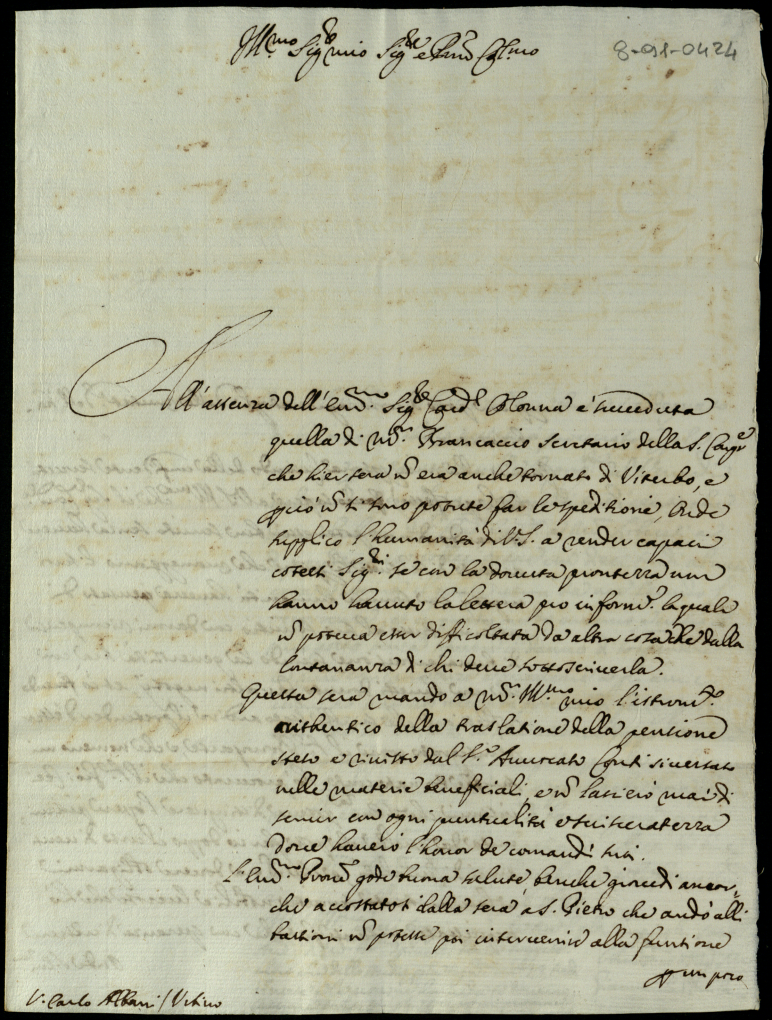 Ill.mo Sig.r mio Sig.re e Pron Col.mo
8-91-0424
All'assenza dell'Em.mo Sig.r Card.l Colonna è succeduta
quella di M.r Brancaccio secretario della S. Cong.e
che hier sera n era anche tornato di Viterbo, e
ciò n si sono potute far le speditioni, onde
supplico l'humanità di V.S. a render capaci
cotesti Sig.ri se con la dovuta prontezza non
hanno havuto la lettera pro inform.e la quale
n poteva esser difficoltata da altra cosa che dalla
lontananza di chi deve sottoscriverla.
Questa sera mando a M.r Ill.mo mio l'istrom.to
authentico della traslatione della pensione
steso e rivisto dal S.r Avvocato Conti versato
nelle materie beneficiali, e n lascierò mai di
servir con ogni puntualità e sviscieratezza
dove haverò l'honor de comandi suoi.
L'Em.mo Pron gode buona salute, benche giovedi ancor-
che accostatosi dalla sera a S. Pietro che andò alli
bastioni n potesse poi intervenire alla funtione
un poco
S. Carlo Albani / Urbino